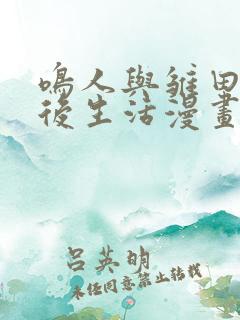 鳴人與雛田
後生活漫畫
呂英明
未经同意禁止转载